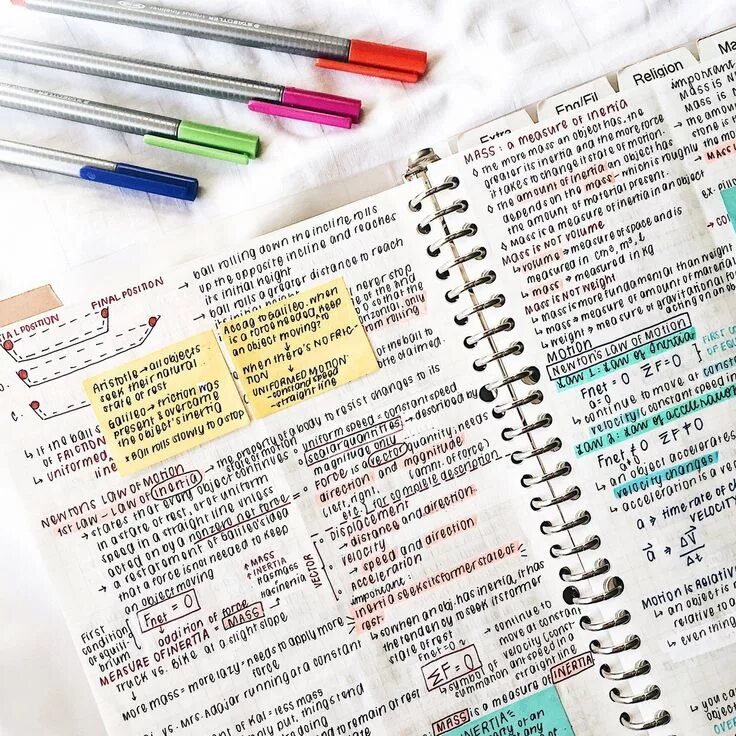 STAEDTLER triplus fineliner
Extra
Eng/Fil
Religion
Ma
FINAL POSITION
POSITION
ball rolling down the incline rolls
up the opposite incline and reaches
its initial height
→ ball rolls a greater distance to reach
Aristotle → all objects
seek their natural
state or rest
Galileo → friction was
present & overcame
the object's inertia
*Ball rolls slowly to a stop
Acdg to Galileo, when
is a force needed, keep
an object moving?
when there's NO FRIC-
TION
UNIFORMED MOTION
-constant speed
-straight line
↳ If the ball
of FRICTION
↳ uniformed,
line
NEWTONS LAW OF MOTION
1st law - Law of inertia
→ the property of a body to resist changes to its
state of motion
→ states that every object continues
in a state of rest, or of uniform
speed in a straight line unless
acted on by a nonzero net force
→ a restatement of Galileo's idea
that a force is not needed to keep
an object moving
First
condition
of equili-
brium
Fnet = 0
addition of force
MEASURE OF INERTIA = MASS
↑ MASS
INERTIA
Kaemass
Kasinertia
TRUCK vs. BIKE at a slight slope
more mass = more lazy = needs to apply more
vs. Mrs. Aajar running at a constant
of Kai = less mass
uniform speed = constant speed
scalar quantities → described by
magnitude only
Force is a vector quantity, needs
direction and magnitude
(left, right,
(amnt. of force)
etc.) for complete description
VECTOR
Displacement
→ distance and direction
velocity
→ speed and direction
acceleration
important:
Inertia seeks its former state of
rest.
↳ so when an obj. has inertia, it has
the tendency to seek its former
state of rest
Fnet = 0
ΣF = 0
↳ symbol of
summation
→ continue to
move at constant
velocity (const-
ant speed in a
straight line
MASS is a measure of INERTIA
INERTIA:
MASS: a measure of inertia
◊ the more mass an object has, the
greater its inertia and the more force
it takes to change its state of motion.
◊ the amount of inertia an object has
depends on the mass - which is roughly
the amount of material present.
◊ Mass is a measure of inertia in an object
Mass is NOT VOLUME
↳ volume → measure of space and is
measured in cm³, m³, L
↳ mass → measured in kg
Mass is NOT WEIGHT
↳ mass is more fundamental than weight
↳ mass → measure of amount of material
↳ weight → measure of gravitational for
acting on
MOTION
NEWTONS LAW OF MOTION
Law 1: Law of Inertia
Fnet = 0 ΣF = 0
a = 0
FIRST CO
OF EQU
↳ continue to move at constant
velocity (constant speed in
Law 2: Law of acceleration
Fnet ≠ 0 ΣF ≠ 0
a ≠ 0
↳ an object accelerates
velocity changes
↳ acceleration is a vec
a → time rate of ch
VELOCITY
a → Δv
Δt
MOTION IS RELATIVE
↳ an object is
relative to a
↳ even thing
↳ you ca
object
OVER
important
MASS IS N
Mass is N
→ the amou
stone is
MASS
ex. pill